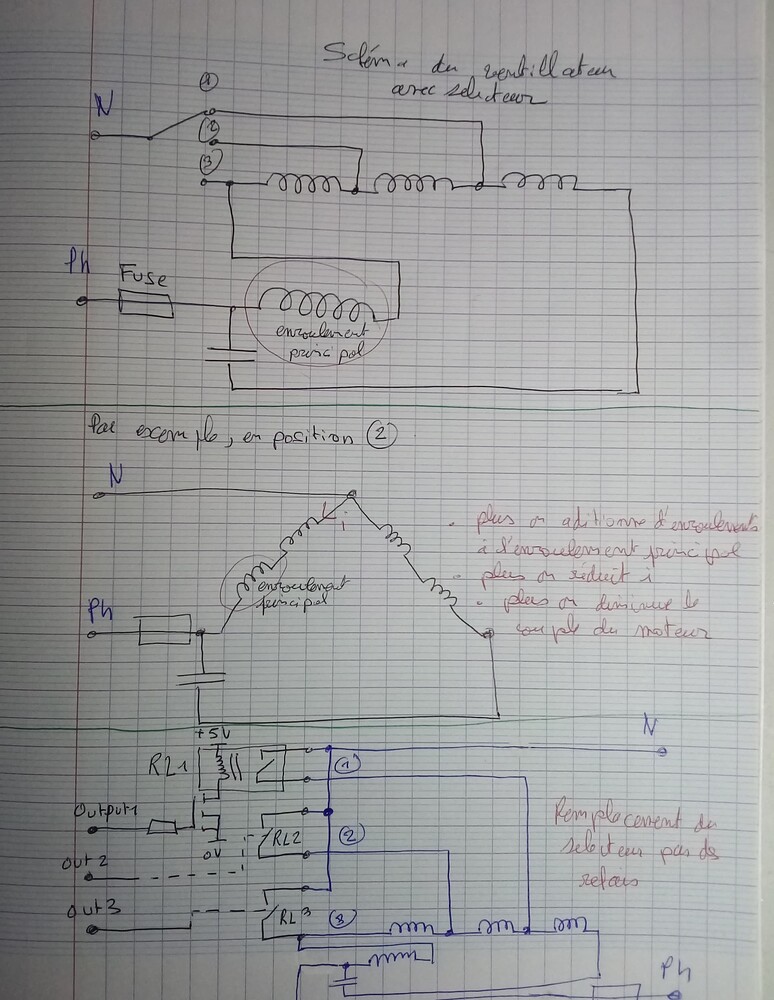 Schéma du ventillateur
avec selecteur
N
1
2
3
Ph
Fuse
enroulement
principal
Par exemple, en position 2
N
i
enroulement
principal
Ph
. plus on aditionne d'enroulements
à l'enroulement principal
. plus on réduit i
. plus on diminue le
couple du moteur
+5V
RL1
N
1
Output1
0V
Out 2
RL2
2
Remplacement du
selecteur par ds
relais
Out 3
RL3
3
Ph